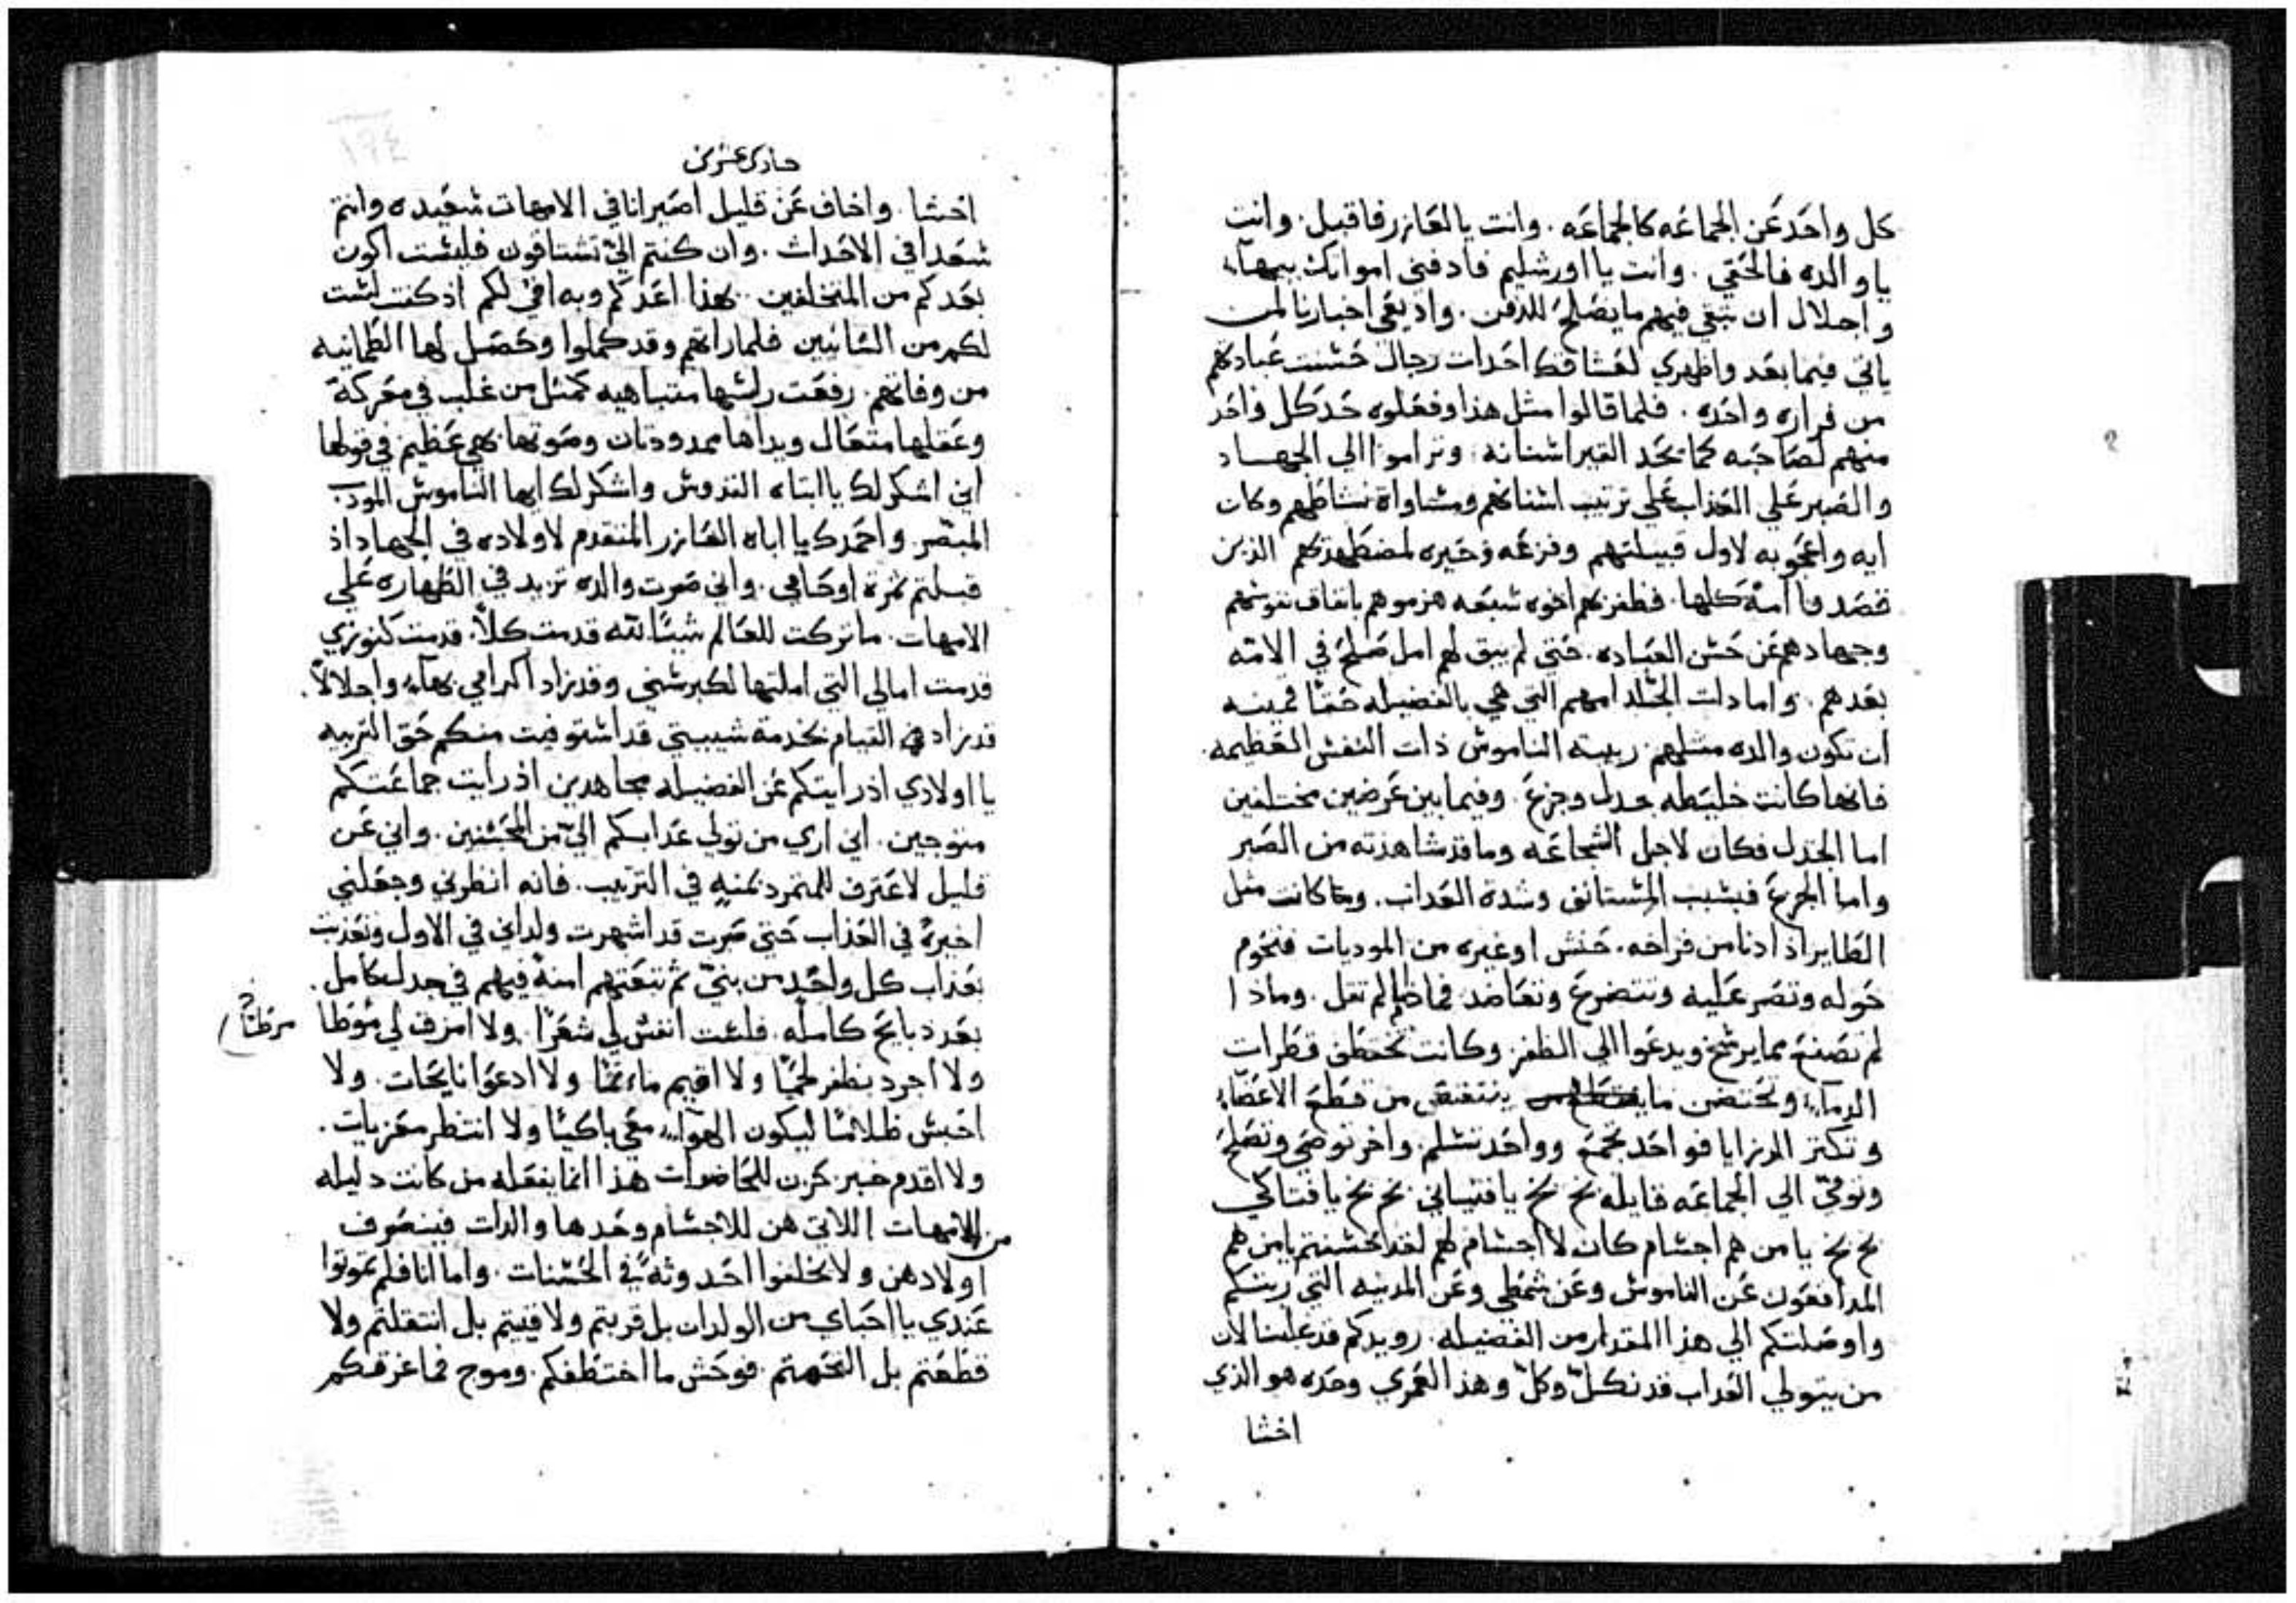 كل واحد عن الجماعه كالجماعه. وانت يالعازر فاقبل. وانت
يا والده فالحقي. وانت يا اورشليم فادفني امواتك ببهاء
واجلال ان تبقي فيهم ما يصلح للدفن. واديعي اخبارنا لمن
ياتي فيما بعد واظهري لعشاقك احدات رجال حسنت عبادتهم
من قراره واحده. فلما قالوا مثل هذا وفعلوه حد كل واحد
منهم لصاحبه كما يحد الخنزير اسنانه. وتراموا الي الجهاد
والصبر علي العذاب علي ترتيب اسنانهم ومساواة نشاطهم وكان
ايه واعجوبه لاول قبيلتهم وفزعه وحيره لمضطهديهم الذين
قصدوا امة كلها. فظفر بهم اخوه سبعه هزموهم باتفاق نفوسهم
وجهادهم عن حسن العباده. حتي لم يبق لهم امل صلح في الامه
بعدهم. واما دات الجلد امهم التي هي بالفضيله حقا قمينه
ان تكون والده مثلهم. ربيبة الناموس ذات النفس العظيمه.
فانها كانت خليطه جدل وجزع. وفيما بين عرضين مختلفين
اما الجدل فكان لاجل الشجاعه وما قد شاهدته من الصبر
واما الجزع فبسبب المستانف وشدة العداب. وكما كانت مثل
الطاير اذا دنا من فراخه. حنش او غيره من الموديات فتحوم
حوله وتصر عليه وتتضرع وتعاضد فماذا لم تقل. وماذا
لم تصنع مما يرشح ويدعوا الي الظفر. وكانت تختطف قطرات
الدماء وتحتضن ما ينتفض من قطع الاعضاء
وتكتر الرزايا فواحد تجمع وواحد تسلم. واخر توضي وتصلح
وتومي الي الجماعه قايله بخ بخ يا فتياني بخ بخ يا فتاكي
بخ بخ يا من هم اجسام كان لا اجسام لهم لقد احسنتم يا من هم
المدافعون عن الناموس وعن شمطي وعن المدينه التي ربتكم
واوصلتكم الي هذا المقدار من الفضيله. رويدكم قد غلبنا لان
من يتولي العداب قد نكل وكل وهذا العمري وحده هو الذي
اخشا
حادي عشرين
اخشا. واخاف عن قليل اصير انا في الامهات سعيده وانتم
سعدا في الاحداث. وان كنتم الي تشتاقون فلست اكون
بعدكم من المتخلفين. بهذا اعدكم وبه افي لكم اذ كنت لست
لكم من الشانيين فلما راتهم وقد كملوا وحصل لها الطمانينه
من وفاتهم. رفعت راسها متباهيه كمثل من غلب في معركة
وعقلها متعال ويداها ممدودتان وصوتها بهي عظيم في قولها
اني اشكر لك يا ابتاه القدوس واشكر لك ايها الناموس المودب
المبصر. واحمدك يا اباه العازر المتقدم لاولاده في الجهاد اذ
قبلتم ثمرة اوجاعي. واني صرت والده تزيد في الطهاره علي
الامهات. ما تركت للعالم شيئا لله قدمت كلاً. قدمت كنوزي
قدمت امالي التي املتها لكبر سني وقد زاد اكرامي بهاء واجلالاً.
قد زاد في القيام بخدمة شيبتي قد استوفيت منكم حق التربيه
يا اولادي اذ رايتكم عن الفضيله مجاهدين اذ رايت جماعتكم
متوجين. اني اري من تولي عدابكم الي من المحسنين. واني عن
قليل لاعترف للمتمرد بمنه في الترتيب. فانه انظرني وجعلني
اخيرة في العذاب حتي صرت قد اشهرت ولداني في الاول وتعذبت
بعذاب كل واحد من بني ثم تبعتهم امنة فيهم في جدل كامل.
بعد دبايح كامله. فلست انفش لي شعراً. ولا امزق لي مؤطا
مرطاً
ولا اجرد بظفر لحما ولا اقيم ماتما ولا ادعوا نايحات. ولا
احبس ظلاما ليكون الهواء معي باكيا ولا انتظر معزيات.
ولا اقدم خبز كرب للحاضرات هذا انما يفعله من كانت دليله
من الامهات اللاتي هن للاجسام وحدها والدات فينصرف
اولادهن ولا يخلفوا احدوثه في الحسنات. واما انا فلم تموتوا
عندي يا احباي من الولدان بل قربتم ولا فنيتم بل انتقلتم ولا
قطعتم بل التحمتم. فوحش ما اختطفكم. وموج فما غرقكم